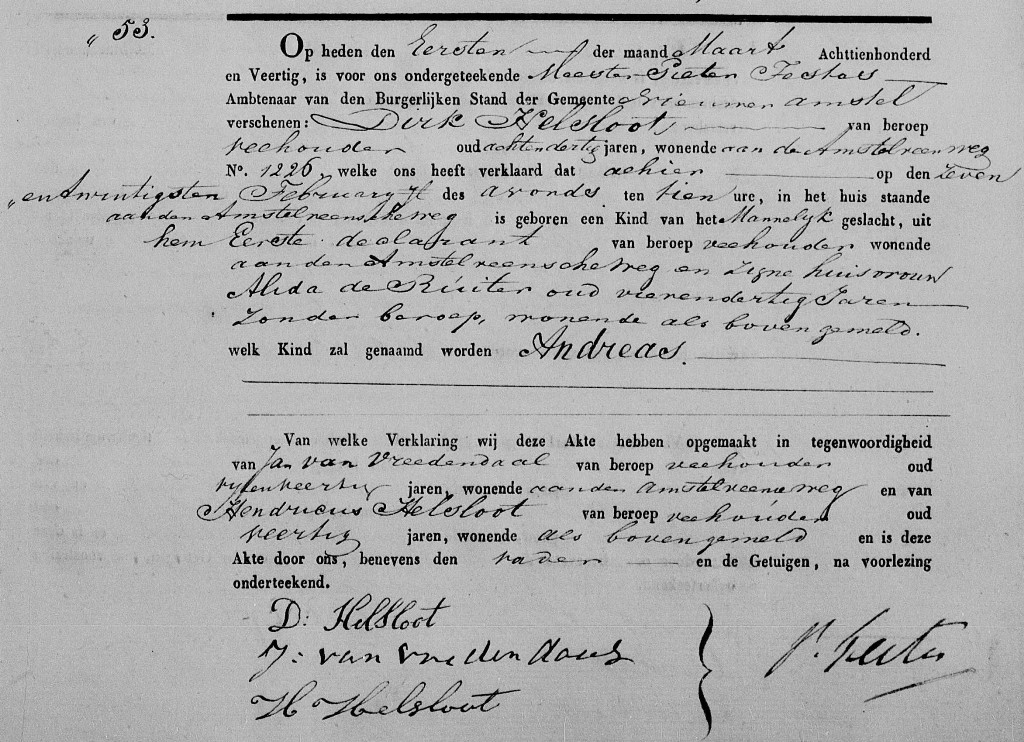 „ 53.
Op heden den Eersten der maand Maart Achttienhonderd
en Veertig, is voor ons ondergeteekende Meester Pieter
Ambtenaar van den Burgerlijken Stand der Gemeente Nieuwer amstel
verschenen: Dirk Helsloot van beroep
veehouder oud achtendertig jaren, wonende aan de Amstelveenweg
No. 1226, welke ons heeft verklaard dat alhier op den Zeven
„en twintigsten February jl des avonds ten tien ure, in het huis staande
aan den Amstelveenscheweg is geboren een Kind van het Mannelyk geslacht, uit
hem Eerste declarant van beroep veehouder wonende
aan den Amstelveenscheweg en Zyne huisvrouw
Alida de Ruiter oud vierendertig Jaren
Zonder beroep, wonende als boven gemeld.
welk Kind zal genaamd worden Andreas.
Van welke Verklaring wij deze Akte hebben opgemaakt in tegenwoordigheid
van Jan van Vreedendaal van beroep veehouder oud
vyfenveertig jaren, wonende aan den amstelveenweg en van
Hendricus Helsloot van beroep veehouder oud
veertig jaren, wonende als boven gemeld en is deze
Akte door ons, benevens den vader en de Getuigen, na voorlezing
onderteekend.
D: Helsloot
J: van vredendaal
H Helsloot